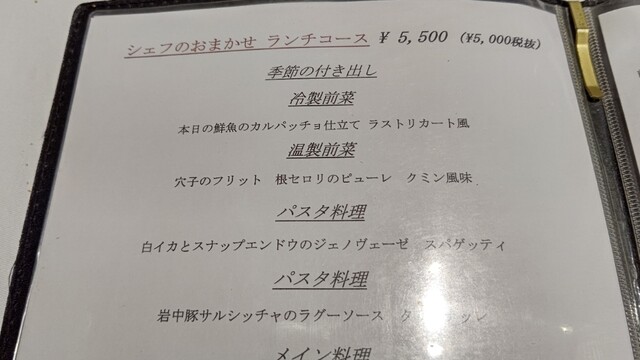 シェフのおまかせ ランチコース ¥ 5,500 (¥5,000税抜)
季節の付き出し
冷製前菜
本日の鮮魚のカルパッチョ仕立て ラストリカート風
温製前菜
穴子のフリット 根セロリのピューレ クミン風味
パスタ料理
白イカとスナップエンドウのジェノヴェーゼ スパゲッティ
パスタ料理
岩中豚サルシッチャのラグーソース
メイン料理